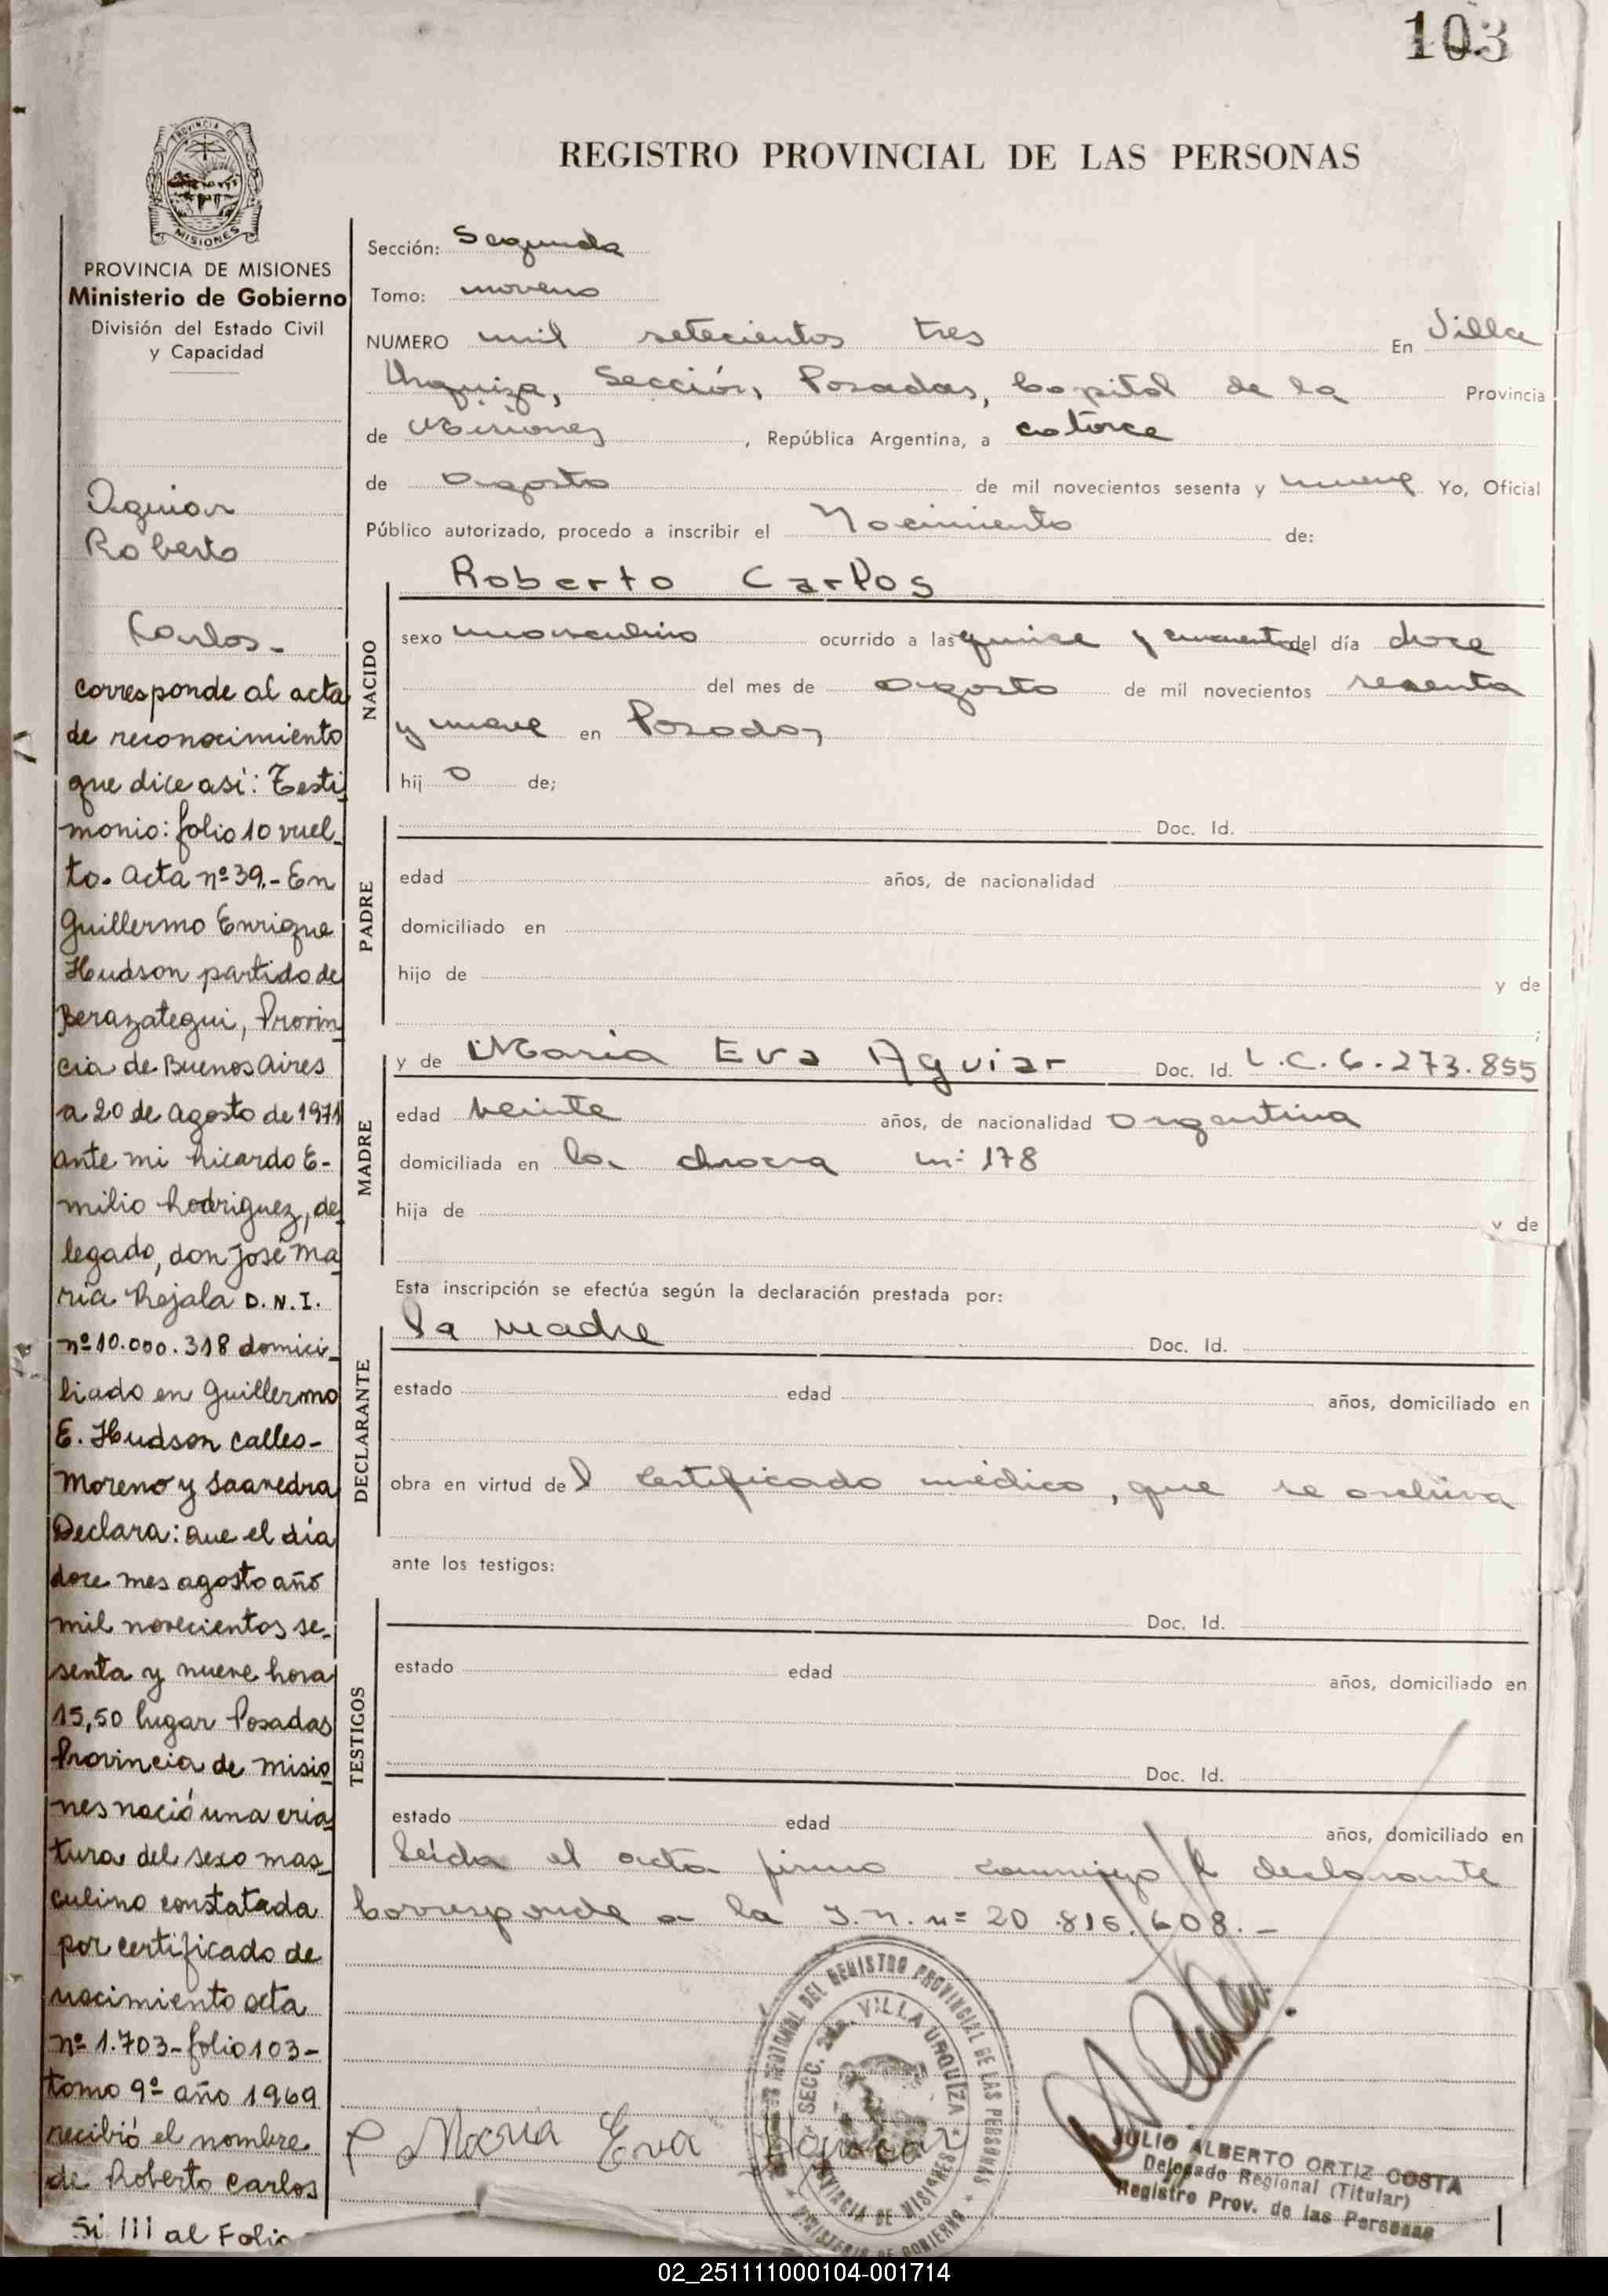 103
REGISTRO PROVINCIAL DE LAS PERSONAS
PROVINCIA DE
MISIONES
PROVINCIA DE MISIONES
Ministerio de Gobierno
División del Estado Civil
y Capacidad
Aguiar
Roberto
Carlos-
corresponde al acta
de reconocimiento
que dice así: Testi
monio: folio 10 vuel-
to. Acta nº 39.- En
Guillermo Enrique
Hudson partido de
Berazategui, Provin
cia de Buenos Aires
a 20 de Agosto de 1971
ante mi Ricardo E-
milio Rodriguez, de
legado, don José Ma
ría Rejala D.N.I.
nº 10.000.318 domici-
liado en Guillermo
E. Hudson calles-
Moreno y Saavedra
Declara: que el día
doce mes agosto año
mil novecientos se-
senta y nueve hora
15,50 lugar Posadas
Provincia de Misio
nes nació una cria
tura del sexo mas-
culino constatada
por certificado de
nacimiento acta
nº 1.703- folio 103-
tomo 9º año 1969
recibió el nombre
de Roberto Carlos
al Folio
Sección: Segunda
Tomo: noveno
NUMERO mil setecientos tres En Villa
Urquiza, Sección, Posadas, Capital de la Provincia
de Misiones, República Argentina, a catorce
de agosto de mil novecientos sesenta y nueve Yo, Oficial
Público autorizado, procedo a inscribir el Nacimiento de:
NACIDO
Roberto Carlos
sexo masculino ocurrido a las quince y cincuenta del día doce
del mes de agosto de mil novecientos sesenta
y nueve en Posadas
hij o de;
PADRE
Doc. Id.
edad años, de nacionalidad
domiciliado en
hijo de y de
;
MADRE
y de María Eva Aguiar Doc. Id. L.C. 6.273.855
edad veinte años, de nacionalidad argentina
domiciliada en la chacra nº 178
hija de y de
Esta inscripción se efectúa según la declaración prestada por:
DECLARANTE
la madre Doc. Id.
estado edad años, domiciliado en
obra en virtud del certificado médico, que se archiva
ante los testigos:
TESTIGOS
Doc. Id.
estado edad años, domiciliado en
Doc. Id.
estado edad años, domiciliado en
Leída el acta firma conmigo l declarante
Corresponde a la nº 20.816.608.-
DEL REGISTRO PROVINCIAL DE LAS PERSONAS
SECC. 2da. VILLA URQUIZA
PROVINCIA DE MISIONES
MINISTERIO DE GOBIERNO
Maria Eva Aguiar
JULIO ALBERTO ORTIZ COSTA
Delegado Regional (Titular)
Registro Prov. de las Personas
02_251111000104-001714